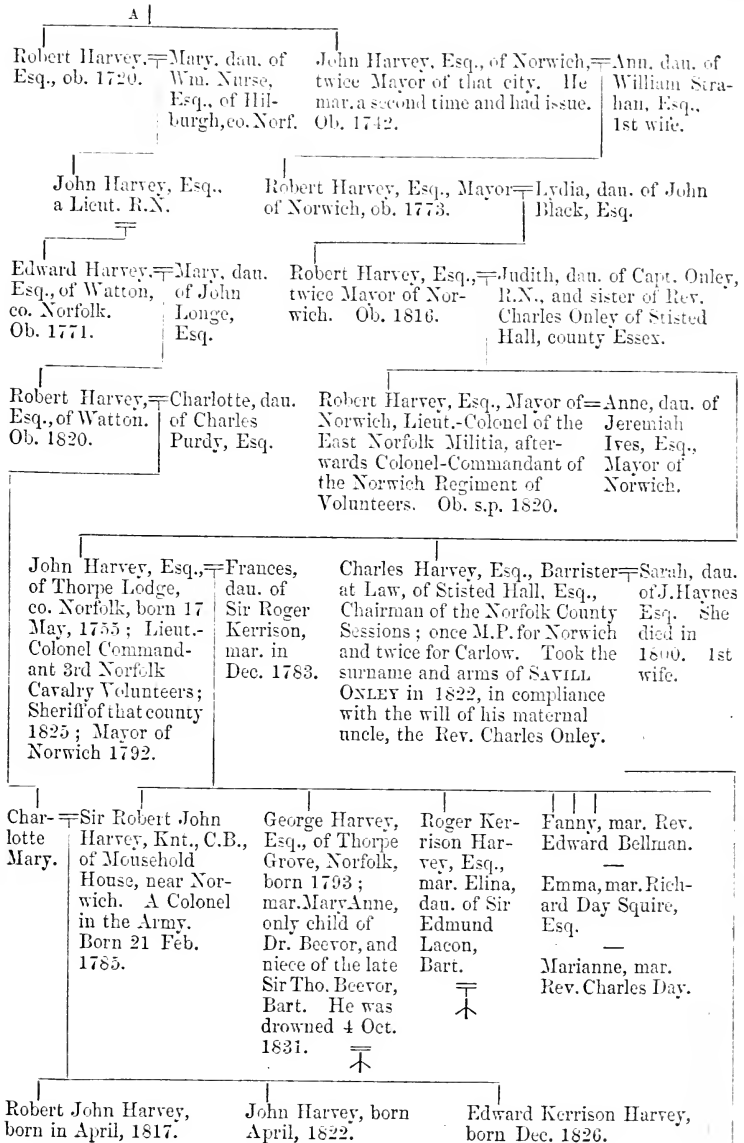 A
Robert Harvey,
Esq., ob. 1720.
Mary, dau. of
Wm. Nurse,
Esq., of Hil-
burgh, co. Norf.
John Harvey, Esq., of Norwich,
twice Mayor of that city. He
mar. a second time and had issue.
Ob. 1742.
Ann, dau. of
William Stra-
han, Esq.,
1st wife.
John Harvey, Esq.,
a Lieut. R.N.
Robert Harvey, Esq., Mayor
of Norwich, ob. 1773.
Lydia, dau. of John
Black, Esq.
Edward Harvey,
Esq., of Watton,
co. Norfolk.
Ob. 1771.
Mary, dau.
of John
Longe,
Esq.
Robert Harvey, Esq.,
twice Mayor of Nor-
wich. Ob. 1816.
Judith, dau. of Capt. Onley,
R.N., and sister of Rev.
Charles Onley of Stisted
Hall, county Essex.
Robert Harvey,
Esq., of Watton.
Ob. 1820.
Charlotte, dau.
of Charles
Purdy, Esq.
Robert Harvey, Esq., Mayor of
Norwich, Lieut.-Colonel of the
East Norfolk Militia, after-
wards Colonel-Commandant of
the Norwich Regiment of
Volunteers. Ob. s.p. 1820.
Anne, dau. of
Jeremiah
Ives, Esq.,
Mayor of
Norwich.
John Harvey, Esq.,
of Thorpe Lodge,
co. Norfolk, born 17
May, 1755; Lieut.-
Colonel Command-
ant 3rd Norfolk
Cavalry Volunteers;
Sheriff of that county
1825; Mayor of
Norwich 1792.
Frances,
dau. of
Sir Roger
Kerrison,
mar. in
Dec. 1783.
Charles Harvey, Esq., Barrister
at Law, of Stisted Hall, Esq.,
Chairman of the Norfolk County
Sessions; once M.P. for Norwich
and twice for Carlow. Took the
surname and arms of SAVILL
ONLEY in 1822, in compliance
with the will of his maternal
uncle, the Rev. Charles Onley.
Sarah, dau.
of J. Haynes
Esq. She
died in
1800. 1st
wife.
Char-
lotte
Mary.
Sir Robert John
Harvey, Knt., C.B.,
of Mousehold
House, near Nor-
wich. A Colonel
in the Army.
Born 21 Feb.
1785.
George Harvey,
Esq., of Thorpe
Grove, Norfolk,
born 1793;
mar. Mary Anne,
only child of
Dr. Beevor, and
niece of the late
Sir Tho. Beevor,
Bart. He was
drowned 4 Oct.
1831.
Roger Ker-
rison Har-
vey, Esq.,
mar. Elina,
dau. of Sir
Edmund
Lacon,
Bart.
Fanny, mar. Rev.
Edward Bellman.
—
Emma, mar. Rich-
ard Day Squire,
Esq.
—
Marianne, mar.
Rev. Charles Day.
Robert John Harvey,
born in April, 1817.
John Harvey, born
April, 1822.
Edward Kerrison Harvey,
born Dec. 1826.